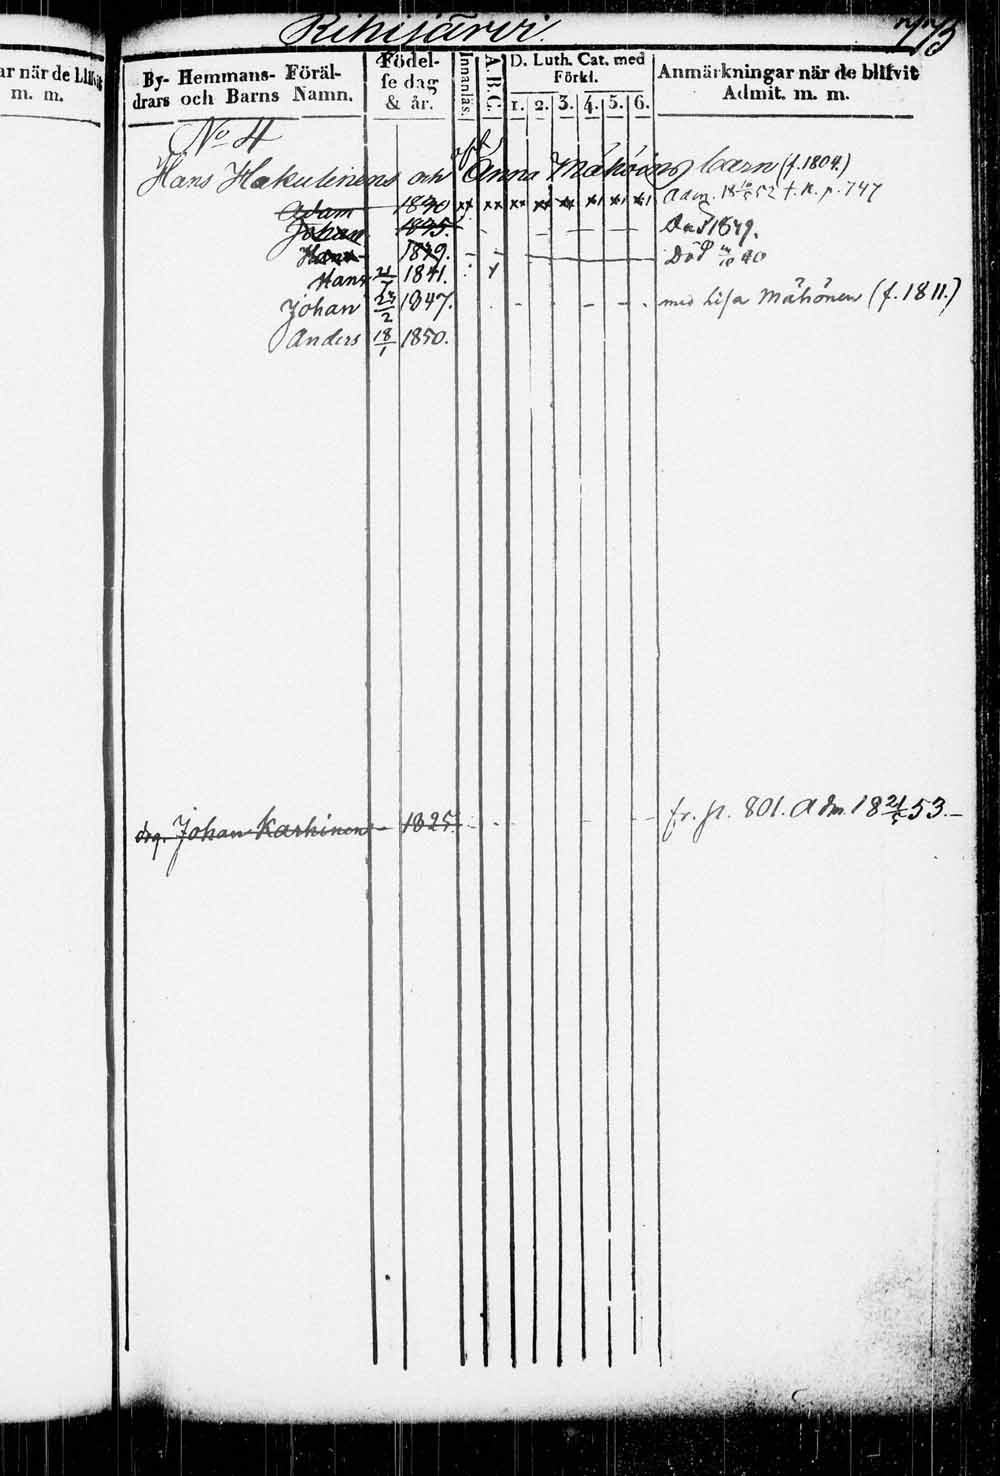 Rihijärvi.
773
ar när de blifvit
m. m.
By- Hemmans- Föräl-
drars och Barns Namn.
Födel-
se dag
& år.
Innanläs.
A.B.C.
D. Luth. Cat. med
Förkl.
1. 2. 3. 4. 5. 6.
Anmärkningar när de blifvit
Admit. m. m.
No 4
Hans Hakulinens och Anna Mähöings barn (f. 1804.)
Adam 1840 Adm. 18 52 p. 747
Johan 1845. Död 1849.
Hans 1849. Död 40
Hans 21/7 1841.
Johan 23/2 1847. med Lisa Mähönen (f. 1811.)
Anders 18/1 1850.
drg. Johan Karhinen 1825. fr. p. 801. Adm. 18 21/5 53.